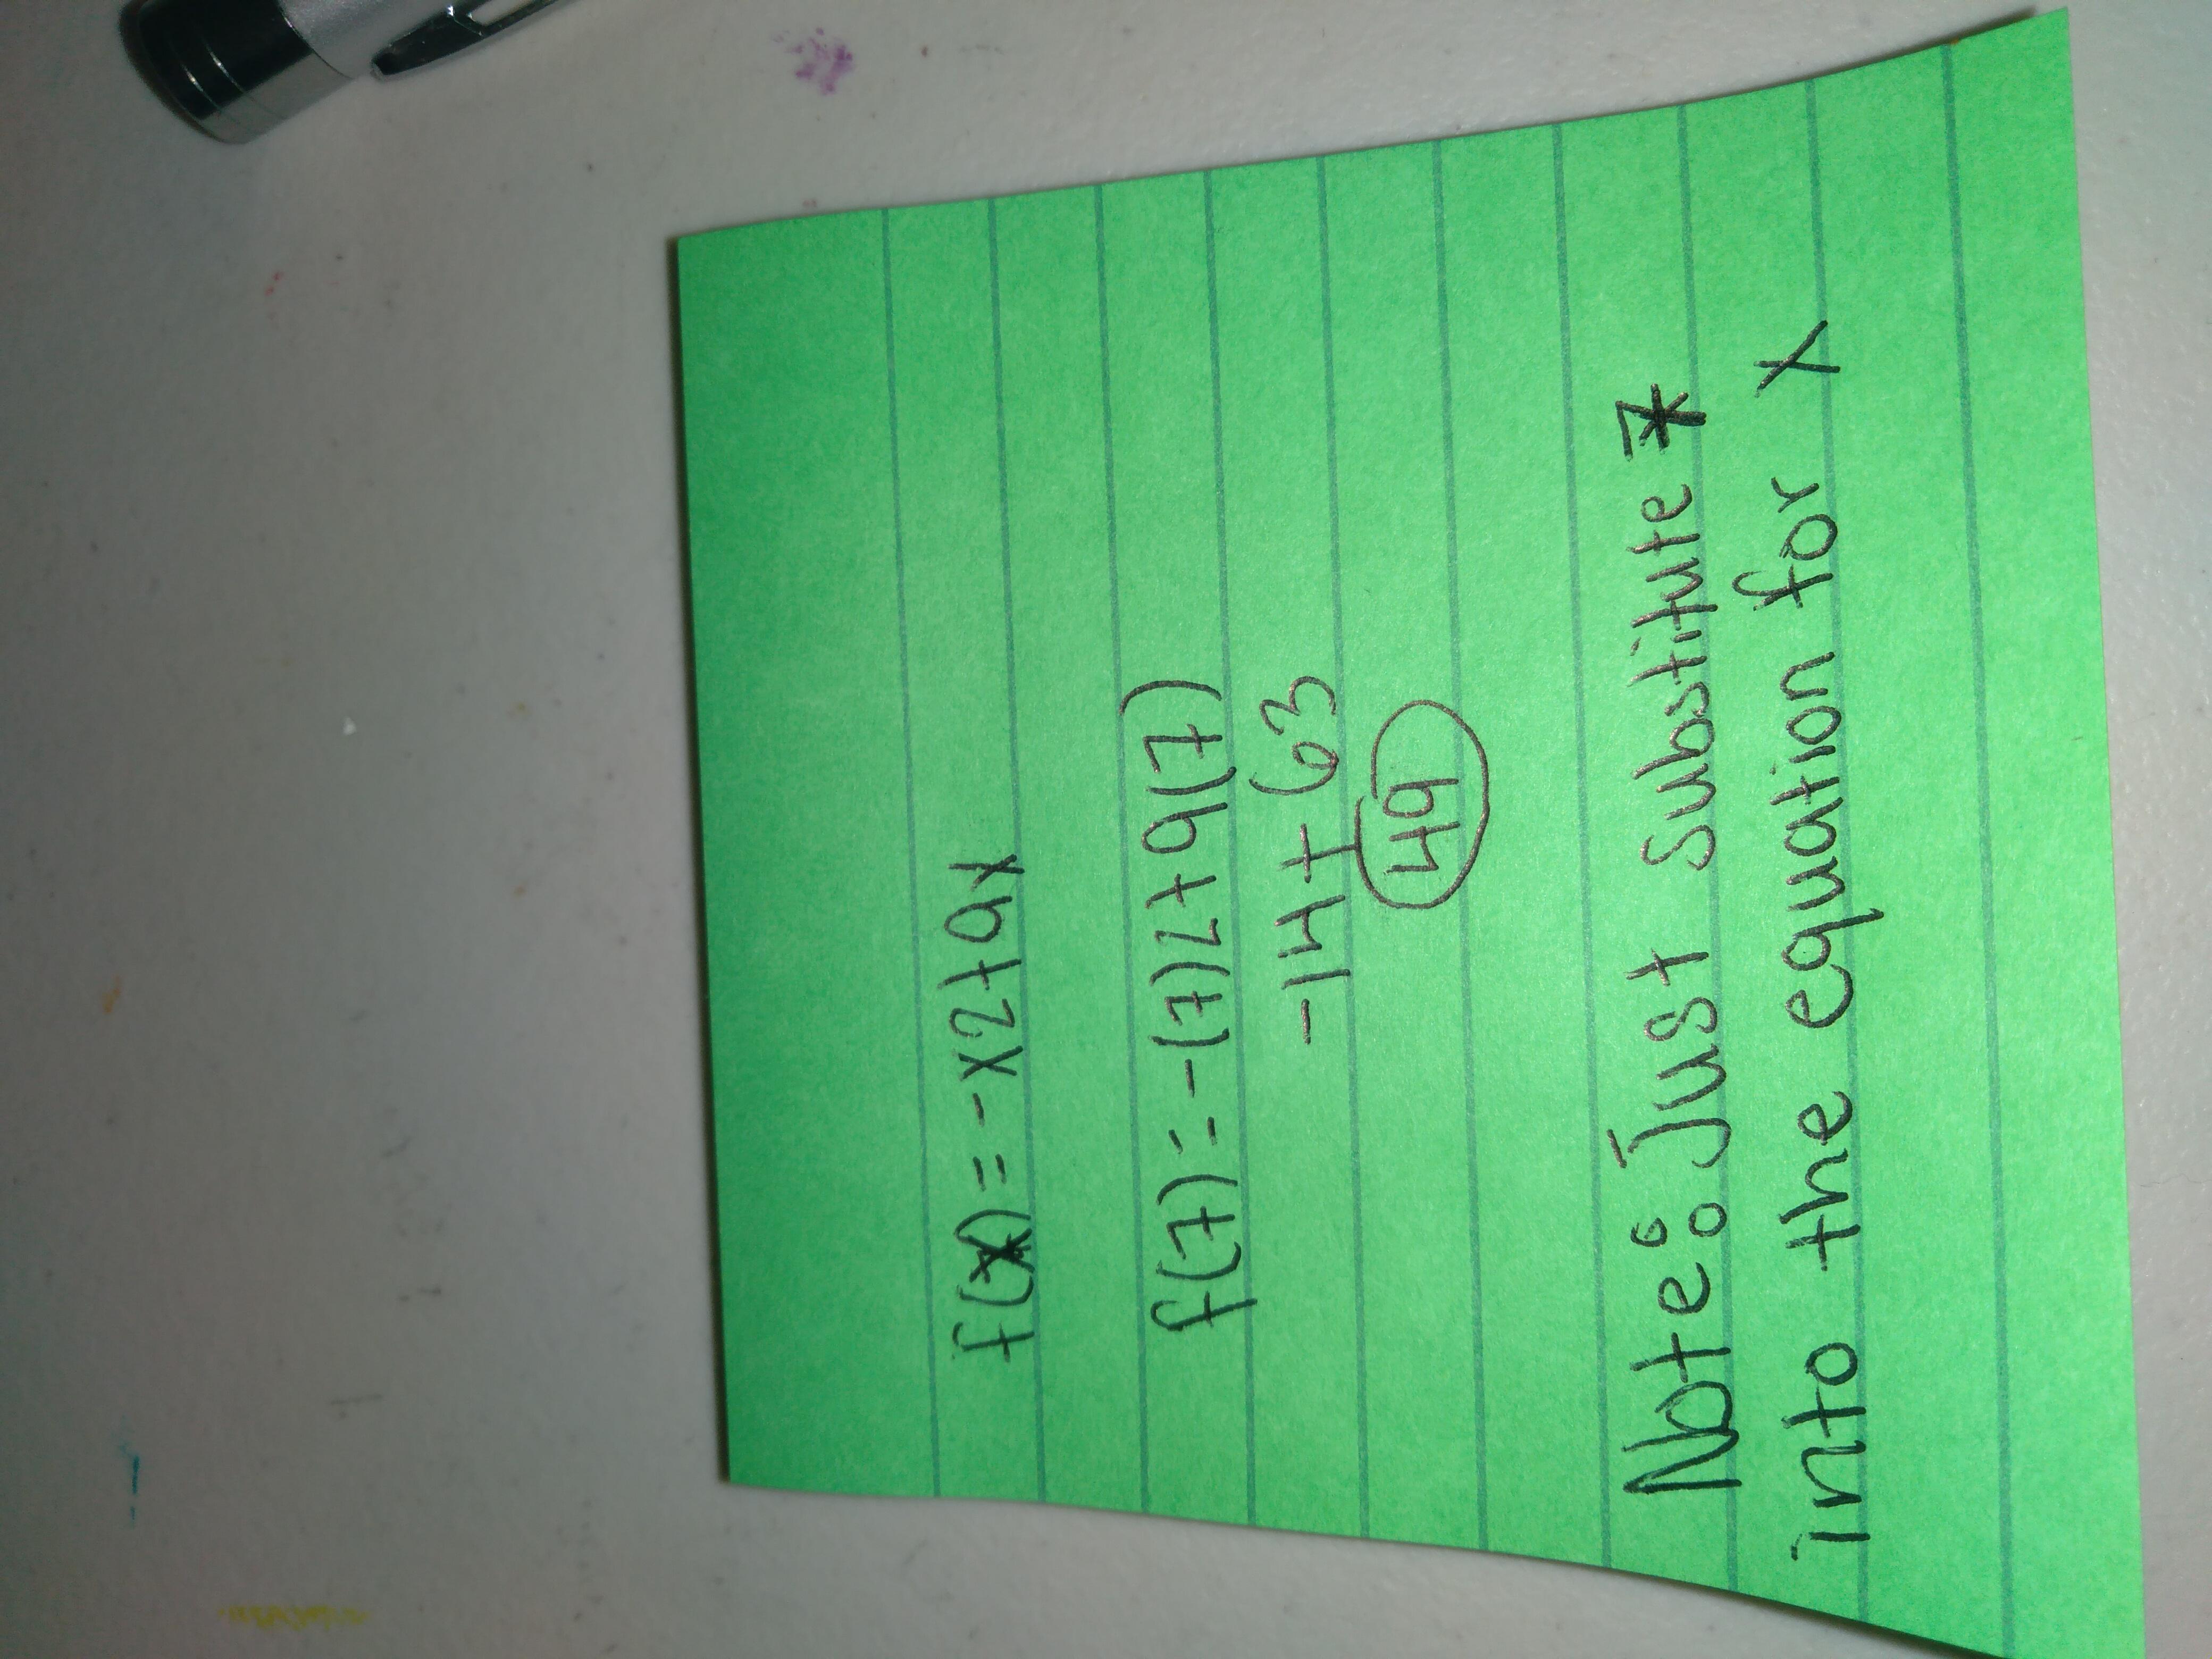 f(x) = -x2+9x
f(7) = -(7)2+9(7)
-14+63
49
Note: Just substitute 7
into the equation for x